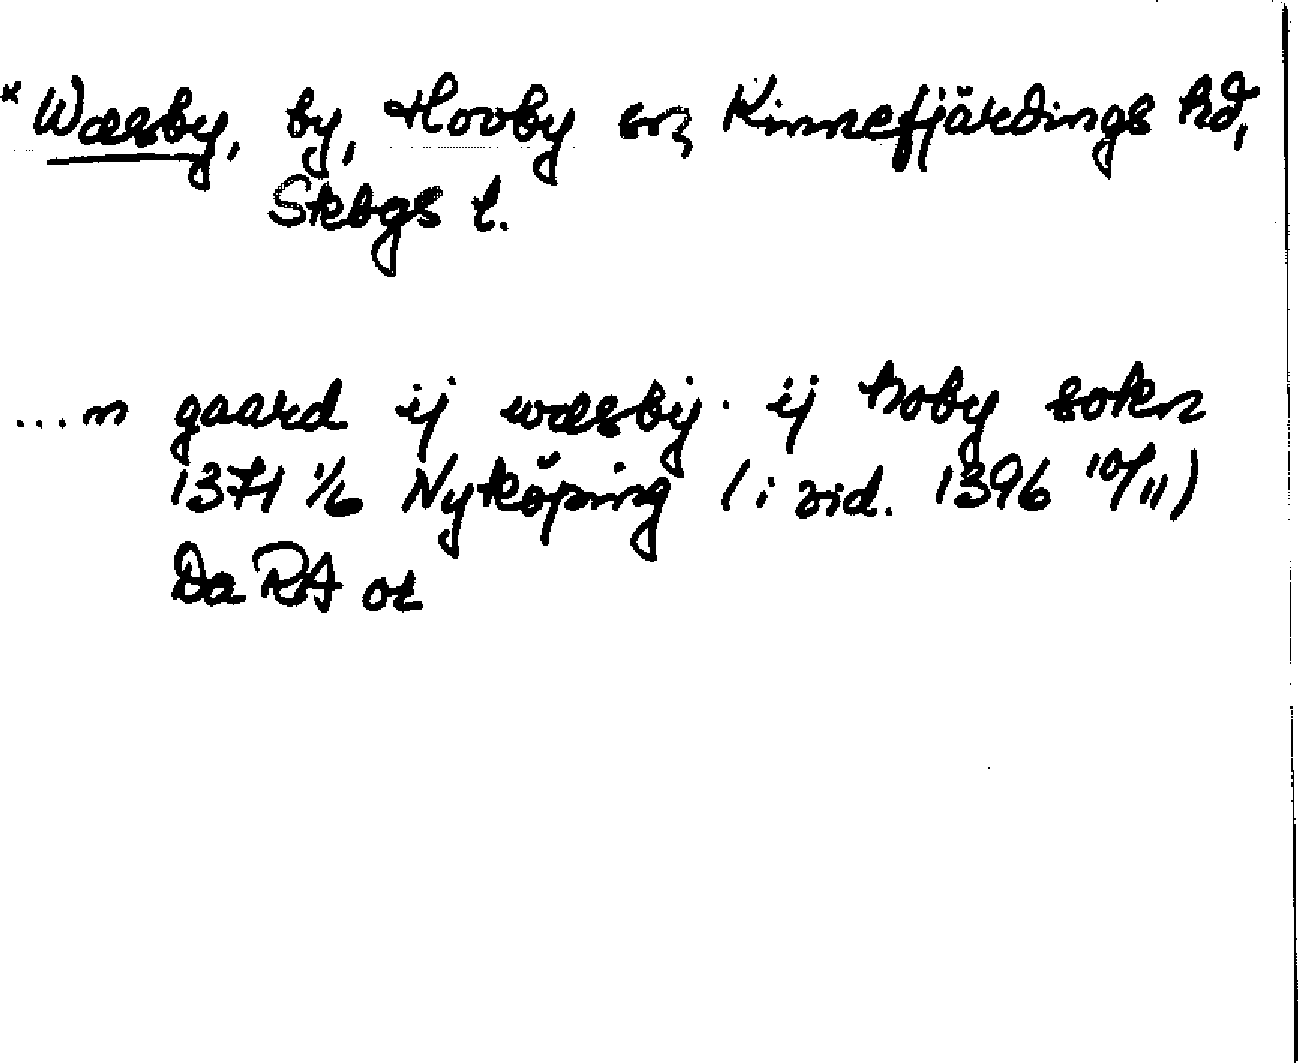 * Wæsby, by, Hovby sn, Kinnefjärdings hd,
Skbgs l.
...n gaard ij wæsby. ij hoby sokn
1371 1/6 Nyköping (i vid. 1396 10/11)
Da RA or